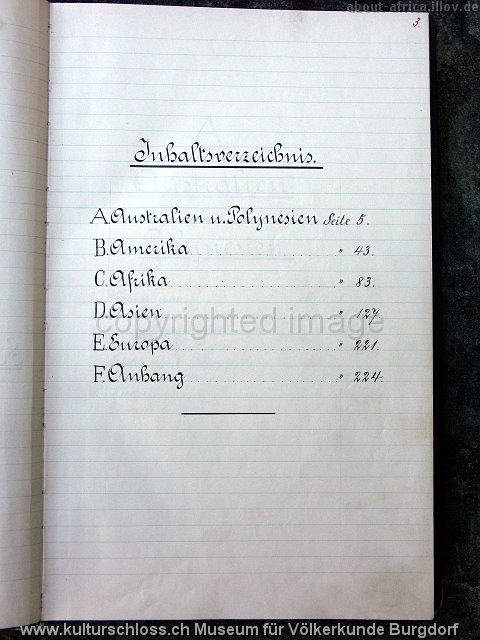 about-africa.illov.de
3.
Inhaltsverzeichnis.
A. Australien u. Polynesien Seite 5.
B. Amerika " 43.
C. Afrika " 83.
D. Asien " 127.
copyrighted image
E. Europa " 221.
F. Anhang " 224.
www.kulturschloss.ch Museum für Völkerkunde Burgdorf